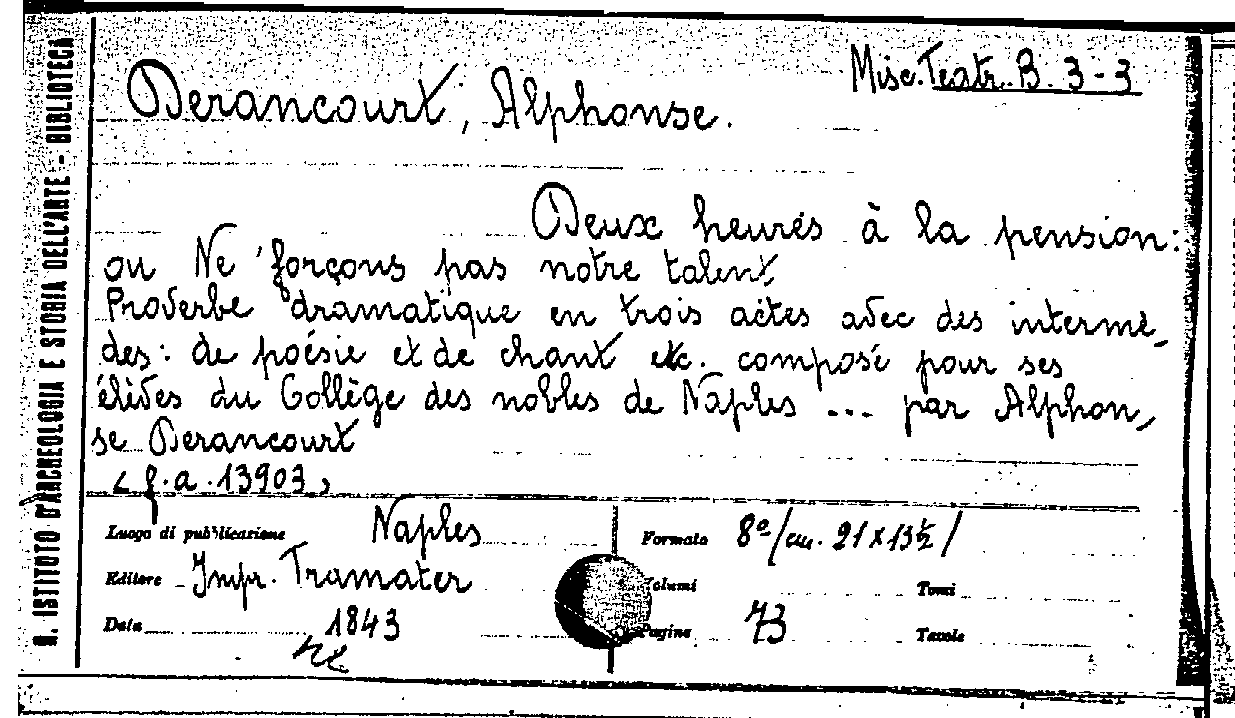 R. ISTITUTO D'ARCHEOLOGIA E STORIA DELL'ARTE - BIBLIOTECA
Misc. Teatr. B. 3-3
Derancourt, Alphonse.
Deux heures à la pension:
ou Ne forçons pas notre talent
Proverbe dramatique en trois actes avec des intermè,
des: de poésie et de chant etc. composé pour ses
élèves du Collège des nobles de Naples ... par Alphon,
se Derancourt
(f.a. 13903)
Luogo di pubblicazione Naples
Formato 8°/cm. 21 x 13½/
Editore Impr. Tramater
Volumi
Tomi
Data 1843
Pagine 73
Tavole